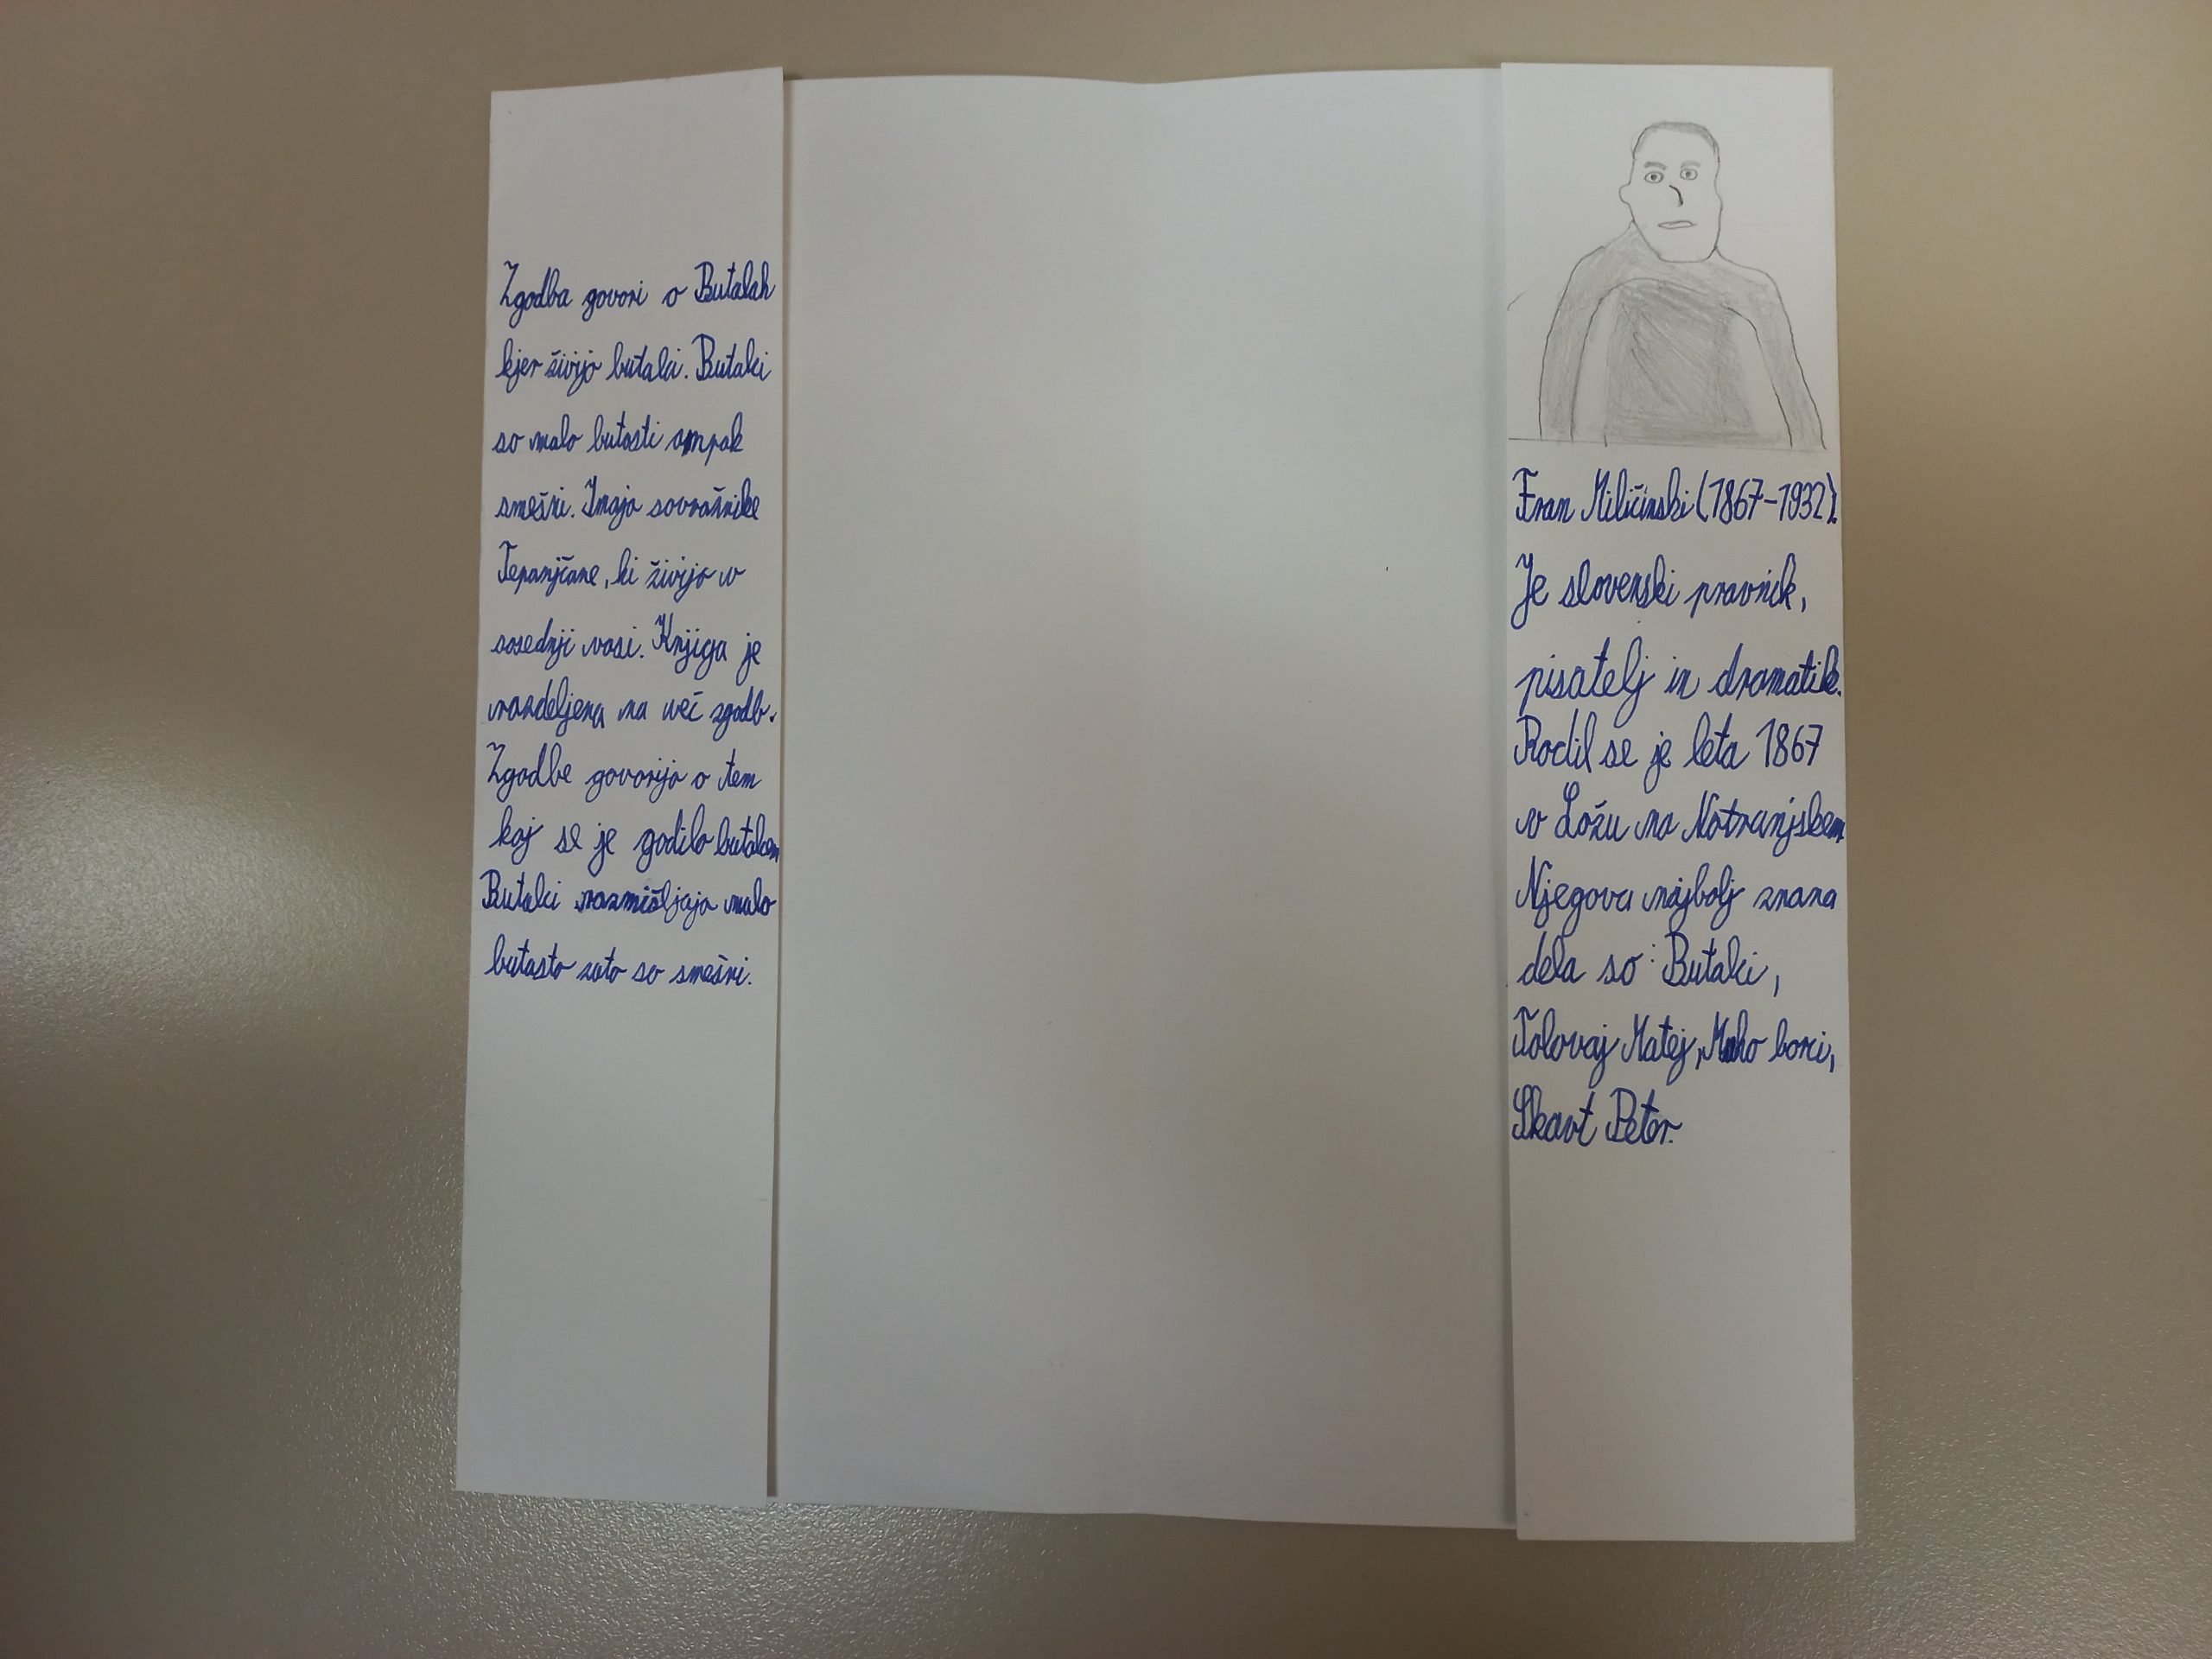 Zgodba govori o Butalah
kjer živijo butalci. Butalci
so malo butasti ampak
smešni. Imajo sovražnike
Tepanjčane, ki živijo v
sosednji vasi. Knjiga je
razdeljena na več zgodb.
Zgodbe govorijo o tem
kaj se je godilo butalcem
Butalci razmišljajo malo
butasto zato so smešni.
Fran Miličinski (1867-1932).
Je slovenski pravnik,
pisatelj in dramatik.
Rodil se je leta 1867
v Ložu na Notranjskem
Njegova najbolj znana
dela so: Butalci,
Tolovaj Matej, borci,
Skavt Peter.